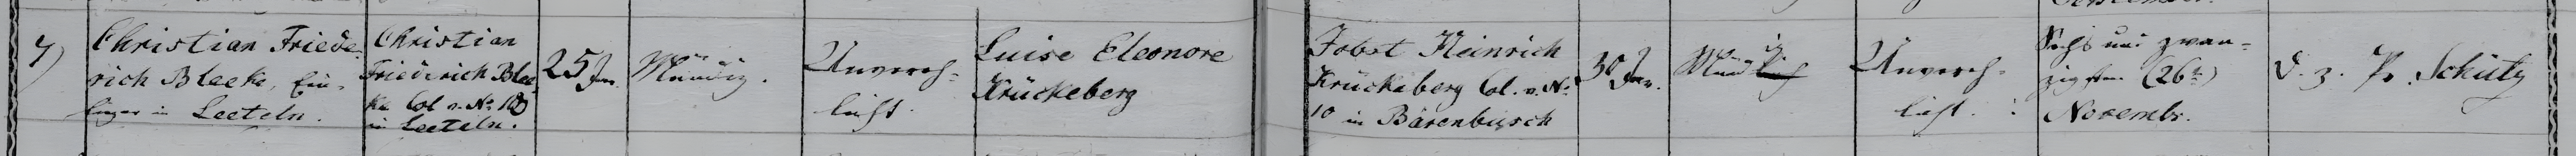 7)
Christian Friede-
rich Bleeke, Ein-
lieger in Leeteln.
Christian
Friederich Blee-
ke Col. v. No. 10
in Leeteln.
25 Jn.
Mündig.
Unvereh-
licht.
Luise Eleonore
Krückeberg
Jobst Heinrich
Krückeberg Col. v. No.
10 in Bärenbusch
30 Jn.
Mündig
Unvereh-
licht.
Sechs und zwan-
zigsten (26n)
Novembr.
d. z. Pr. Schütz